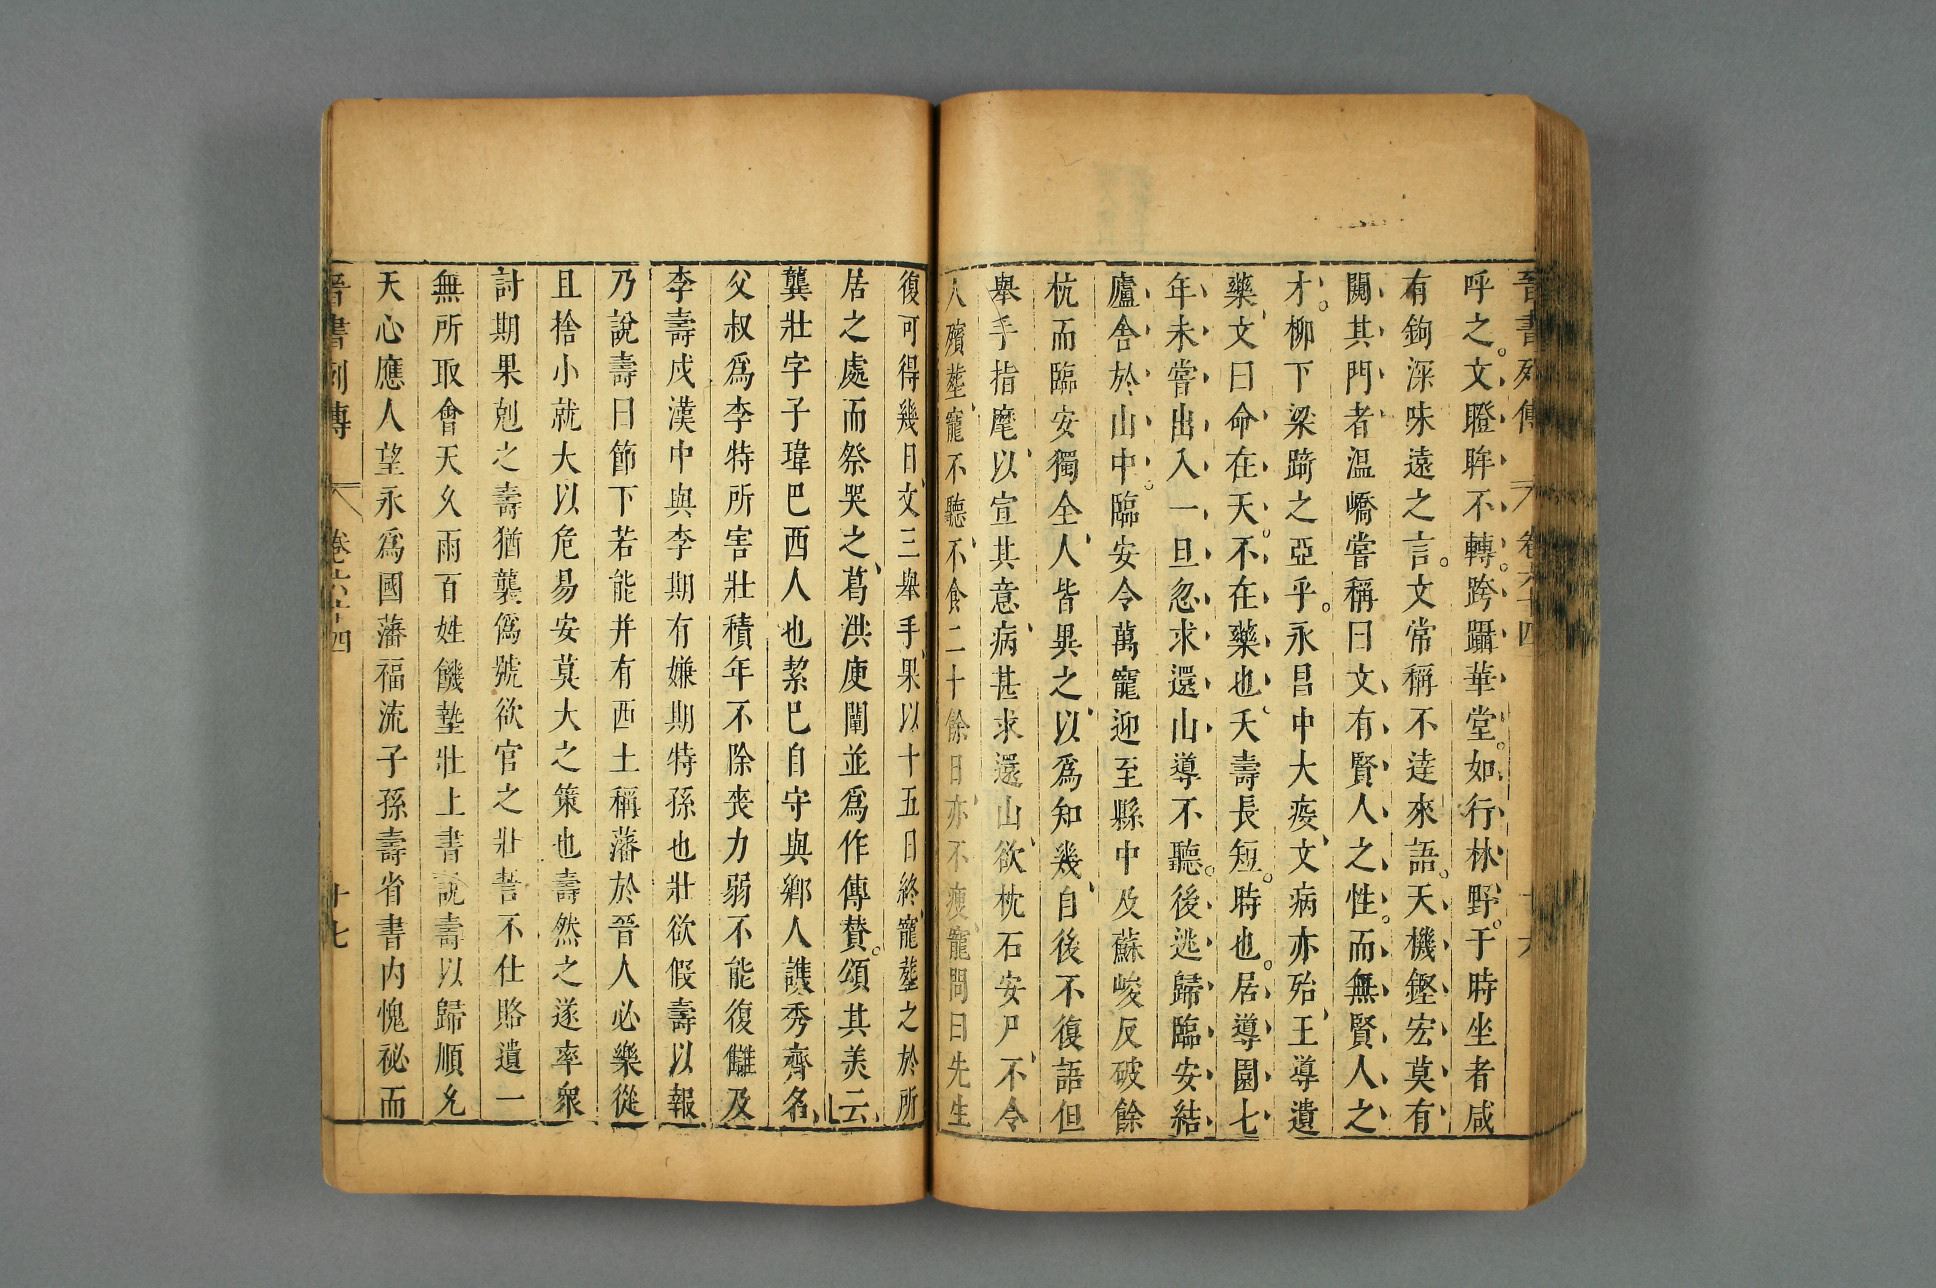 晉書列傳 卷六十四 十六
呼之。文瞪眸不轉。跨躡華堂。如行林野。于時坐者咸
有鉤深味遠之言。文常稱不達來語。天機鏗宏莫有
闚其門者溫嶠嘗稱曰文有賢人之性。而無賢人之
才。柳下梁踦之亞乎。永昌中大疫、文病亦殆、王導遺
藥、文曰命在天。不在藥也。夭壽長短。時也。居導園七
年未嘗出入一旦忽求還山導不聽。後逃歸臨安結
廬舍於山中。臨安令萬寵迎至縣中及蘇峻反破餘
杭而臨安獨全、人皆異之、以爲知幾、自後不復語但
舉手指麾、以宣其意、病甚求還山、欲枕石安尸、不令
人殯塟、寵不聽、不食二十餘日、亦不瘦、寵問曰先生
復可得幾日、文三舉手、果以十五日終、寵塟之於所
居之處而祭哭之、葛洪庾闡並爲作傳贊。頌其美云
龔壯字子瑋巴西人也絜已自守與鄉人譙秀齊名
父叔爲李特所害壯積年不除喪力弱不能復讎及
李壽戍漢中與李期有嫌期特孫也壯欲假壽以報
乃說壽曰節下若能并有西土稱藩於晉人必樂從
且捨小就大以危易安莫大之策也壽然之遂率衆
討期果尅之壽猶襲僞號欲官之壯誓不仕賂遺一
無所取會天久雨百姓饑墊壯上書說壽以歸順允
天心應人望永爲國藩福流子孫壽省書内愧祕而
晉書列傳 卷六十四 十七